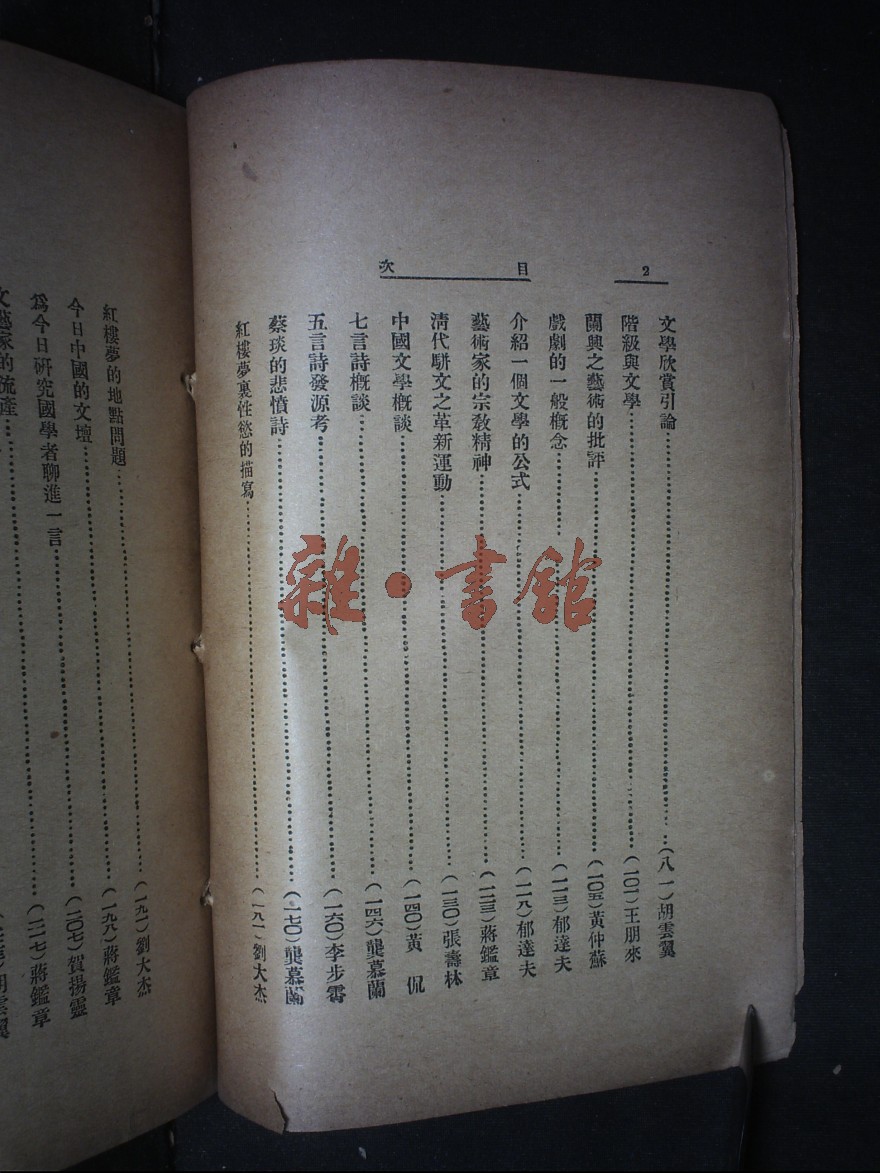 2
目 次
文學欣賞引論……(八一)胡雲翼
階級與文學……(一〇一)王朋來
蘭興之藝術的批評……(一〇五)黃仲蘇
戲劇的一般概念……(一一三)郁達夫
介紹一個文學的公式……(一一八)郁達夫
藝術家的宗教精神……(一二三)蔣鑑章
清代駢文之革新運動……(一三〇)張壽林
中國文學概談……(一四〇)黃 侃
七言詩概談……(一四六)龔慕蘭
五言詩發源考……(一六〇)李步霽
蔡琰的悲憤詩……(一七〇)龔慕蘭
紅樓夢裏性慾的描寫……(一八一)劉大杰
紅樓夢的地點問題……(一九一)劉大杰
今日中國的文壇……(一九八)蔣鑑章
爲今日研究國學者聊進一言……(二〇七)賀揚靈
文藝家的流產……(二一七)蔣鑑章
胡雲翼
雜·書館